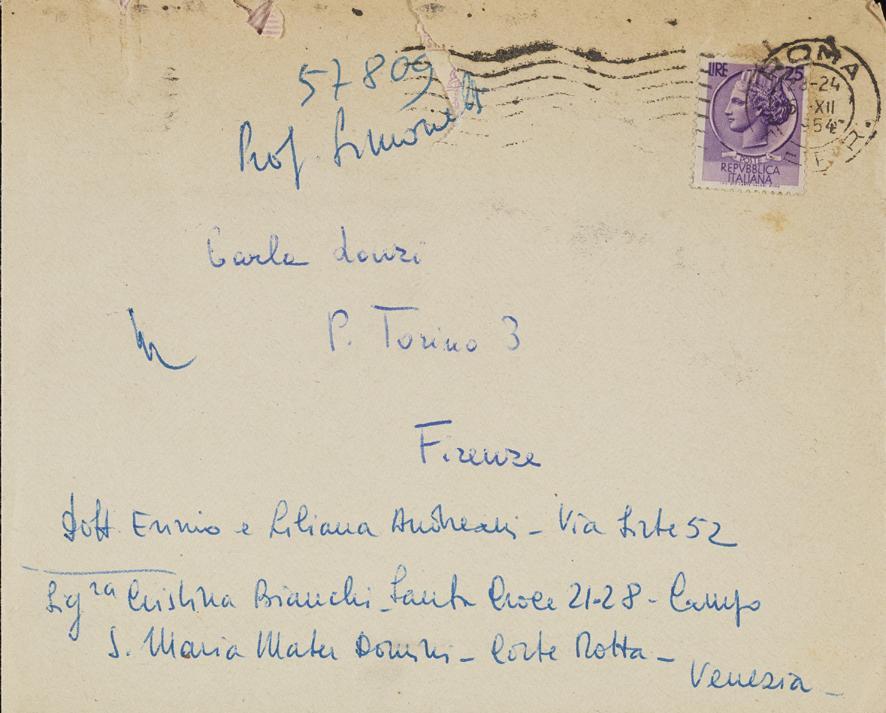 57809
Prof Simone
ROMA
LIRE 25
23-24
XII
1954
FERR.
POSTE
REPVBBLICA
ITALIANA
Carla Lonzi
P. Torino 3
Firenze
Dott Ennio e Liliana Andreani - Via Sirte 52
Sig.ra Cristina Bianchi - Santa Croce 21-28 - Campo
S. Maria Mater Domini - Corte Rotta -
Venezia -